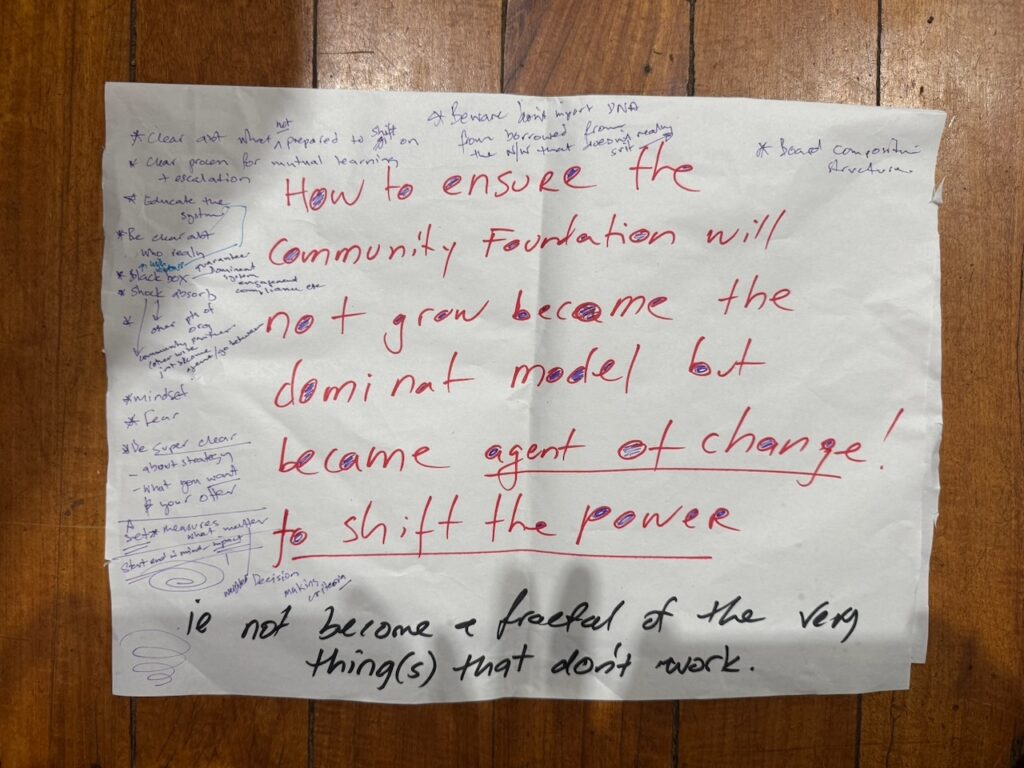 * Clear abt what not prepared to shift on
* clear process for mutual learning
+ escalation
* Educate the
system
* Be clear abt
who really
* Black box – guarantee
dominant
system
engagement
compliance etc
* Shock absorb
*
other pts of
org
community partner
otherwise
just become
agent/go between
* mindset
* Fear
* Be super clear
- about strategy
- what you want
& your offer
* measures
what matter
Start end in mind - impact
Decision
making
criteria
* Beware don't import DNA
from borrowed from
the N/W that doesn't really
suit
* Board composition
structure
How to ensure the
community Foundation will
not grow became the
dominat model but
became agent of change!
to shift the power
ie not become a fractal of the very
thing(s) that don't work.